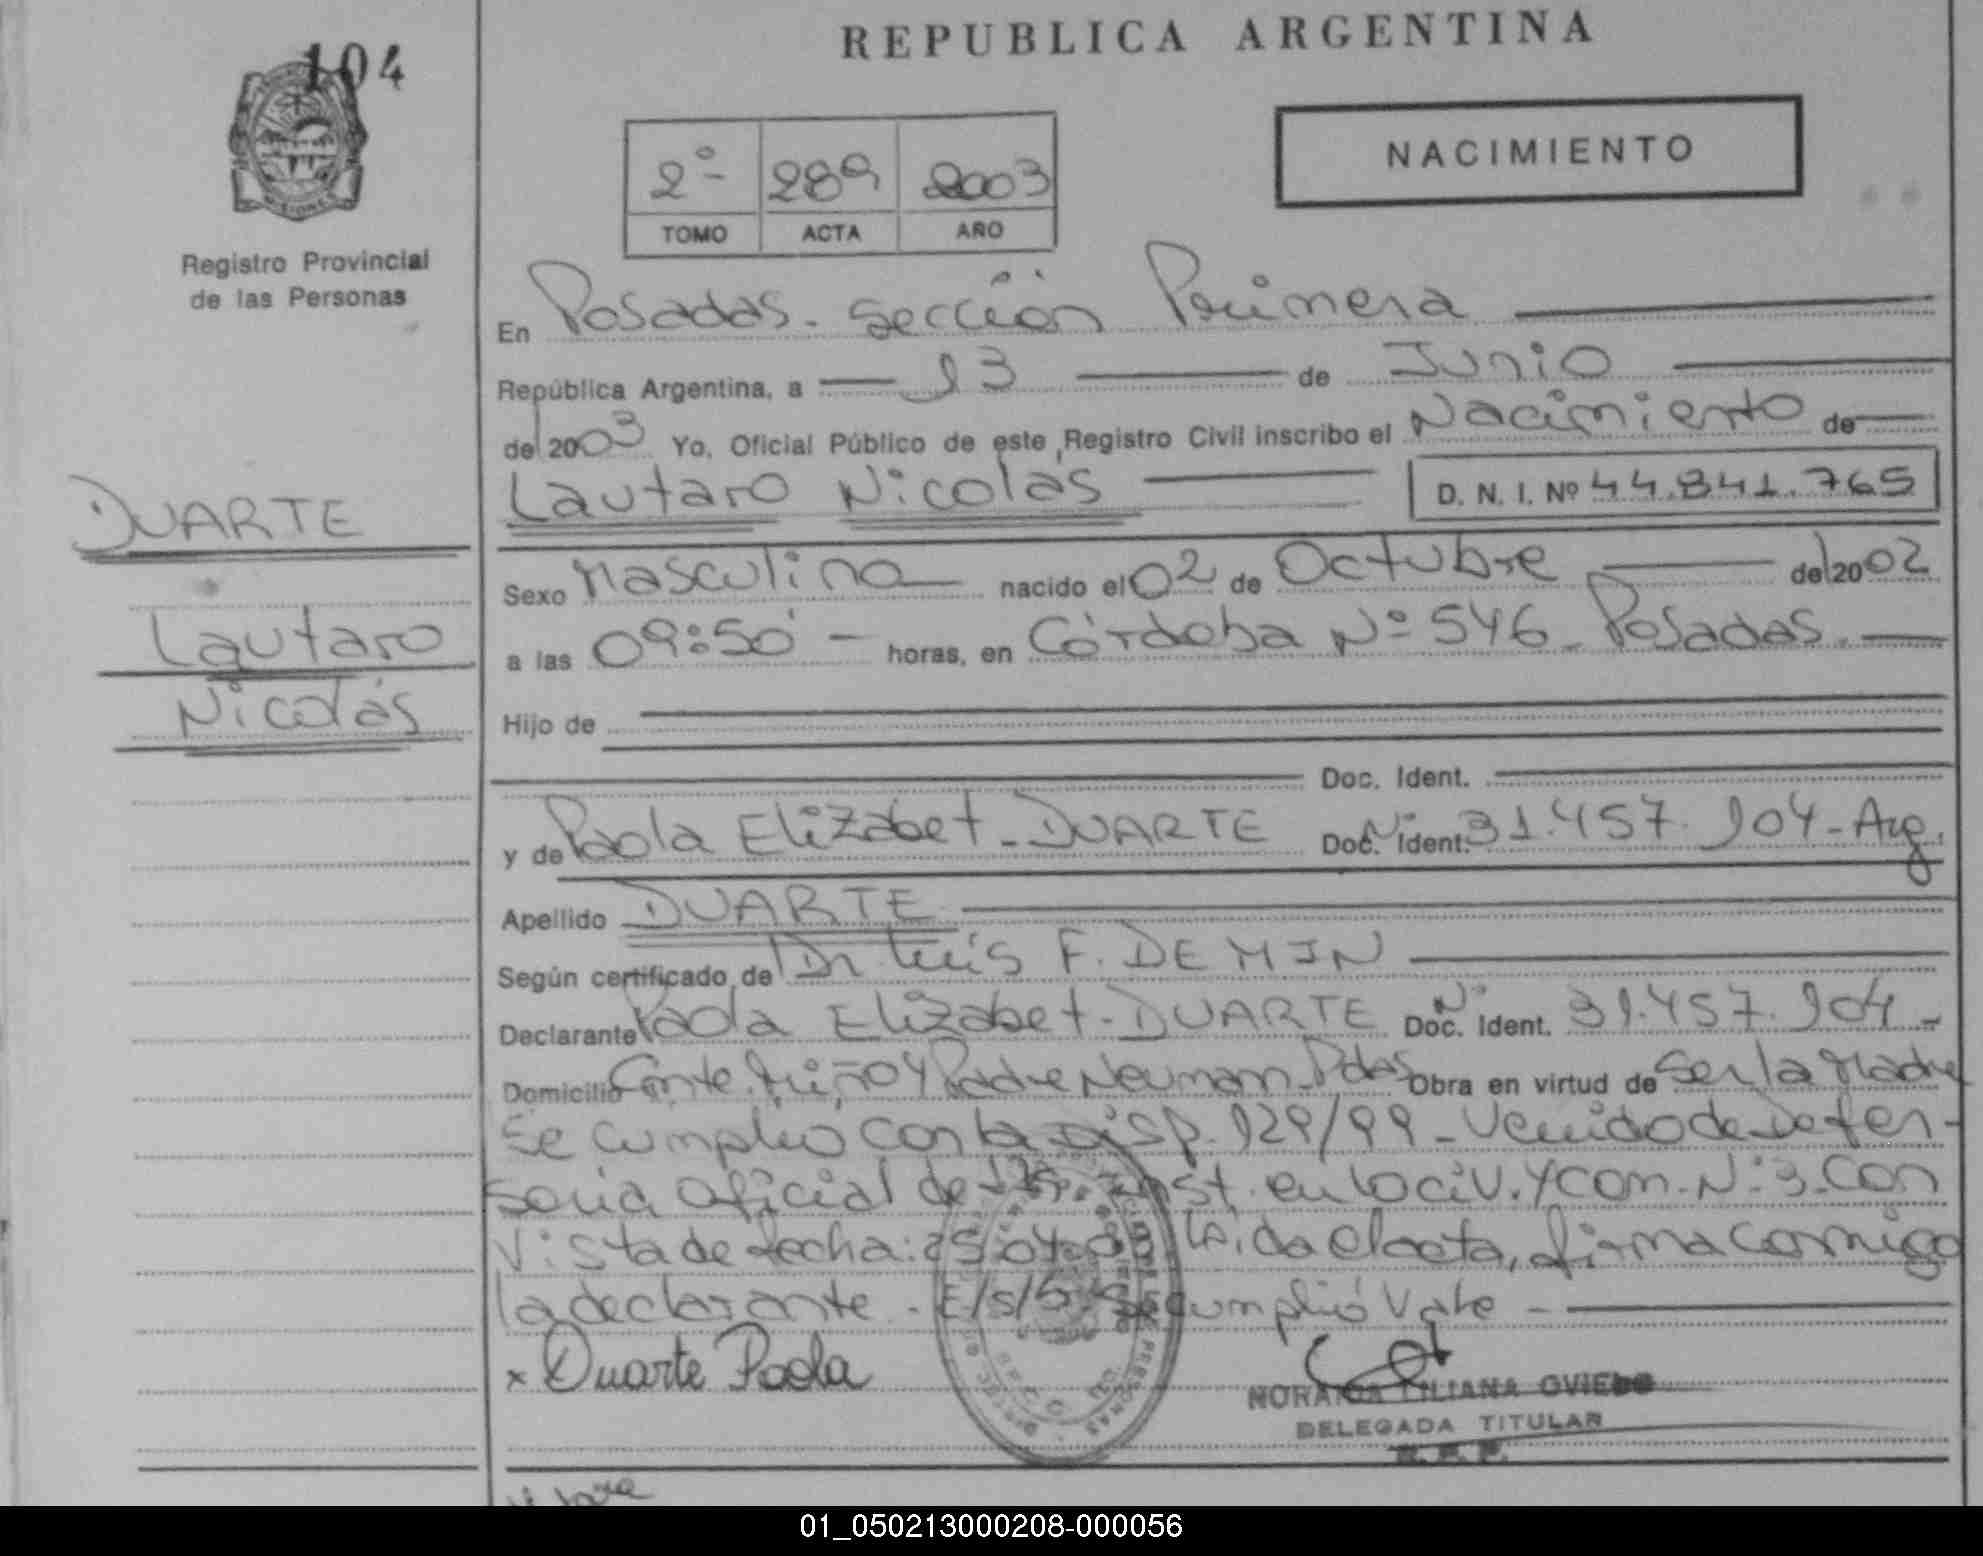 104
REPUBLICA ARGENTINA
NACIMIENTO
2º 289 2003
TOMO ACTA AÑO
MISIONES
Registro Provincial
de las Personas
En Posadas. Sección Primera
República Argentina, a 13 de Junio
del 2003 Yo, Oficial Público de este Registro Civil inscribo el Nacimiento de
Lautaro Nicolás D. N. I. Nº 44.841.765
DUARTE
Lautaro
Nicolás
Sexo Masculino nacido el 02 de Octubre del 2002
a las 09:50 - horas, en Córdoba Nº 546 - Posadas.
Hijo de
Doc. Ident.
y de Paola Elizabet - DUARTE Doc. Ident. Nº 31.457.104 - Arg.
Apellido DUARTE
Según certificado de Dr Luis F. DEMIN
Declarante Paola Elizabet - DUARTE Doc. Ident. Nº 31.457.104 -
Domicilio Padre Neuman - Pdas Obra en virtud de Ser la Madre
Se cumplio con la Disp. 129/99 - Venido de Defen-
soria Oficial de Inst. en lo Civ. y Com. Nº 3 - Con
Vista de fecha: 25-04-03 Leida el acta, firma conmigo
la declarante - E/s/ Se cumplió Vale -
x Duarte Paola
LILIANA OVIEDO
DELEGADA TITULAR
R. P. P.
01_050213000208-000056